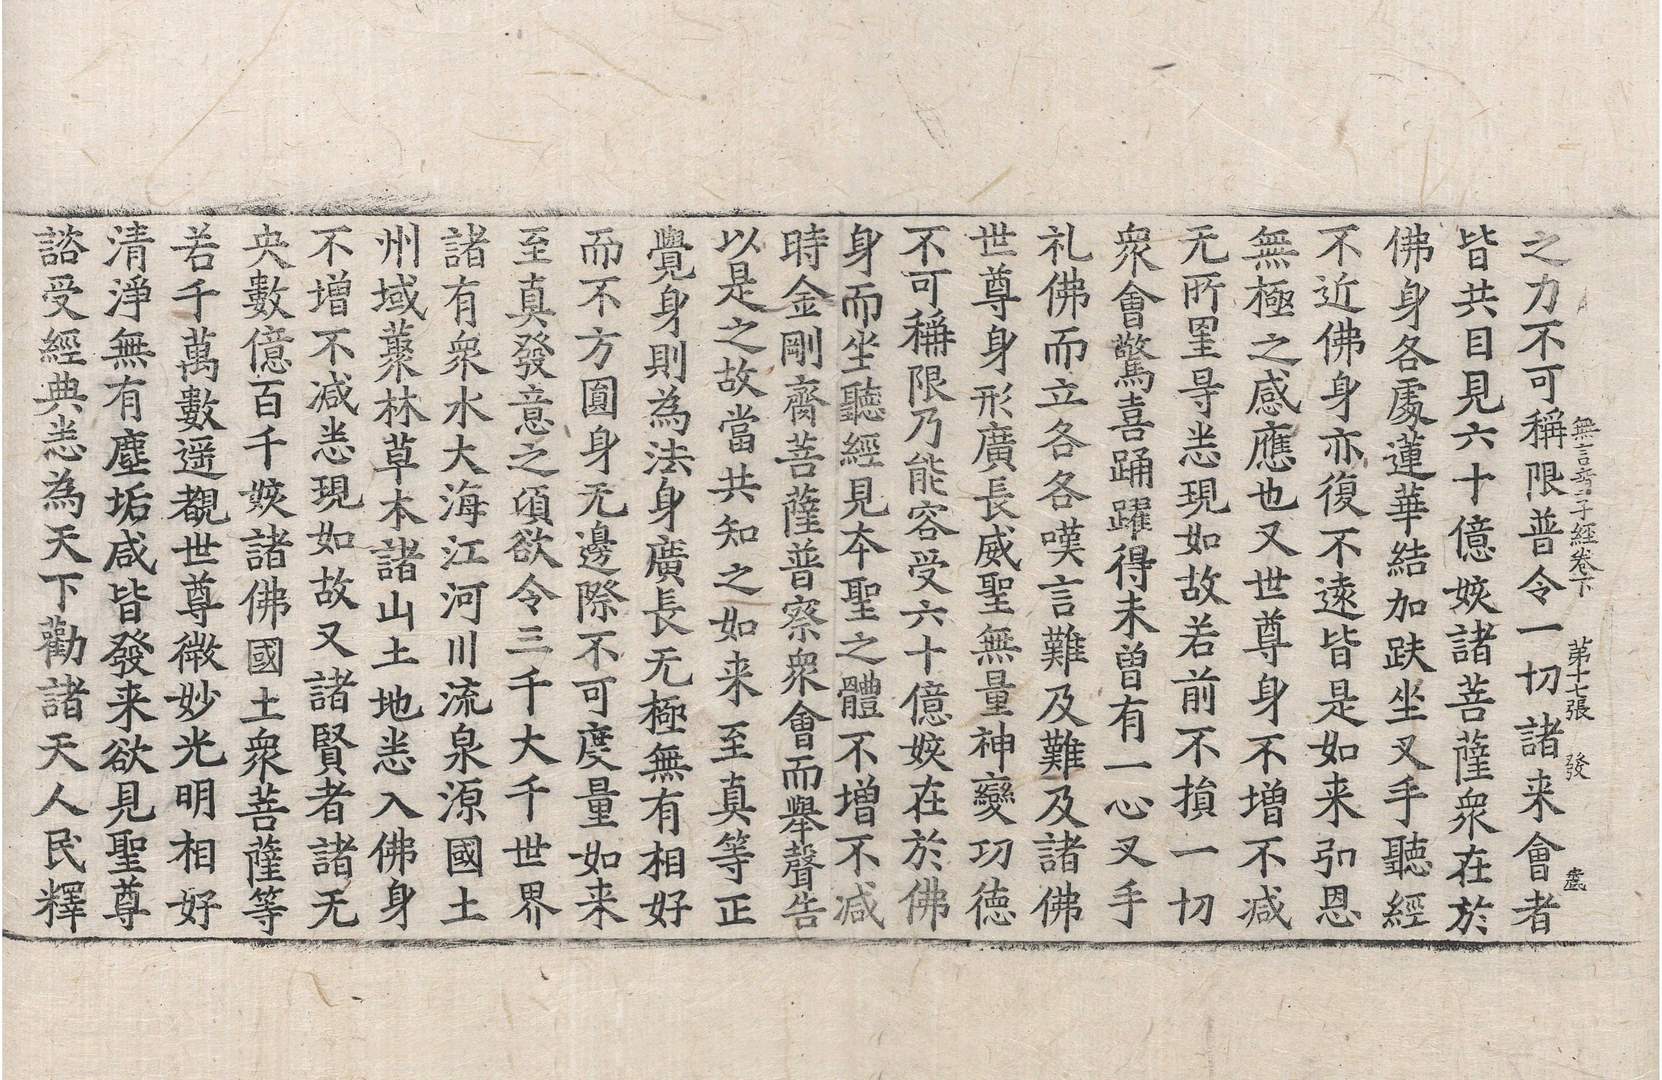 無言童子經卷下 第十七張 發
之力不可稱限普令一切諸来會者
皆共目見六十億姟諸菩薩衆在於
佛身各處蓮華結加趺坐叉手聽經
不近佛身亦復不遠皆是如来弘恩
無極之感應也又世尊身不增不减
无所罣㝵悉現如故若前不損一切
衆會驚喜踊躍得未曽有一心叉手
礼佛而立各各嘆言難及難及諸佛
世尊身形廣長威聖無量神變㓛徳
不可稱限乃能容受六十億姟在於佛
身而坐聽經見夲聖之體不增不减
時金剛齊菩薩普察衆會而舉聲告
以是之故當共知之如来至真等正
覺身則為法身廣長无極無有相好
而不方圓身无邊際不可度量如来
至真發意之頃欲令三千大千世界
諸有衆水大海江河川流泉源國土
州域藂林草木諸山土地悉入佛身
不增不减悉現如故又諸賢者諸无
央數億百千姟諸佛國土衆菩薩等
若千萬數遥覩世尊微妙光明相好
清淨無有塵垢咸皆發来欲見聖尊
諮受經典悉為天下勸諸天人民釋